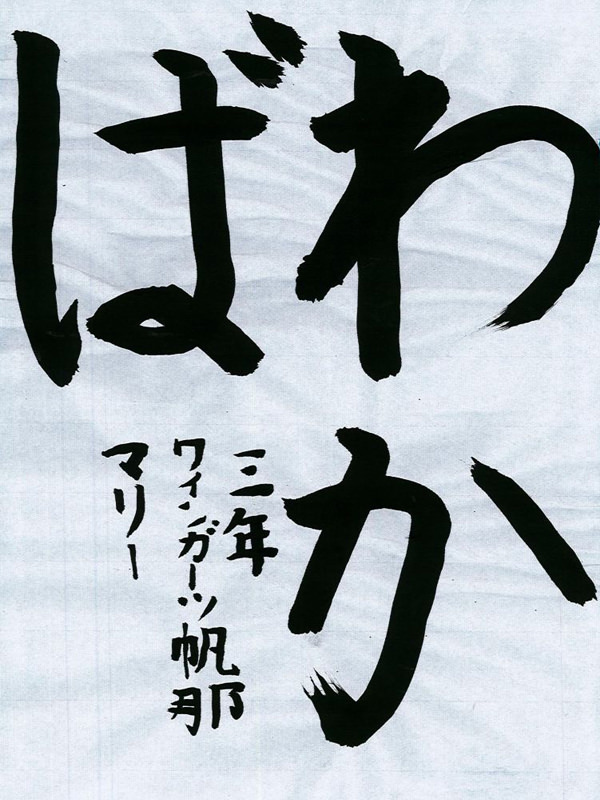 わか
ば
三年
ワィンガーツ帆那
マリー